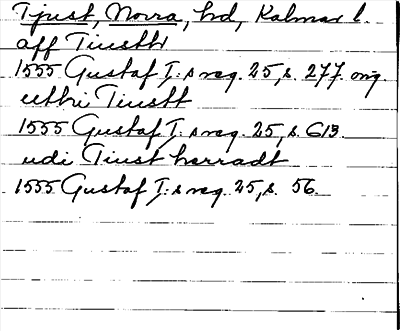 Tjust, Norra, hd, Kalmar l.
aff Tiusth
1555 Gustaf I:s reg. 25, s. 277. orig.
uthi Tiustt
1555 Gustaf I:s reg. 25, s. 613.
udi Tiust herradt
1555 Gustaf I:s reg. 25, s. 56.